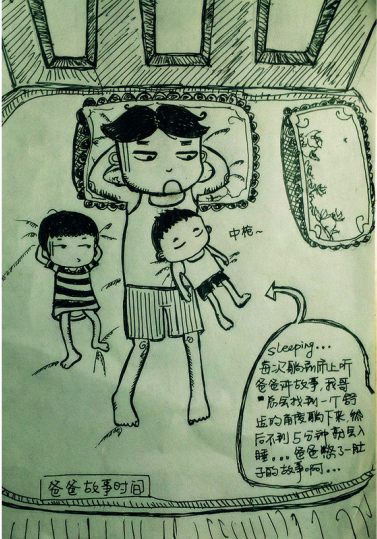 中枪~
sleeping...
每次躺到床上听
爸爸讲故事,我哥
会找到一个舒
适的角度躺下来,然
后不到5分钟就会入
睡...爸爸憋了一肚
子的故事啊...
爸爸故事时间